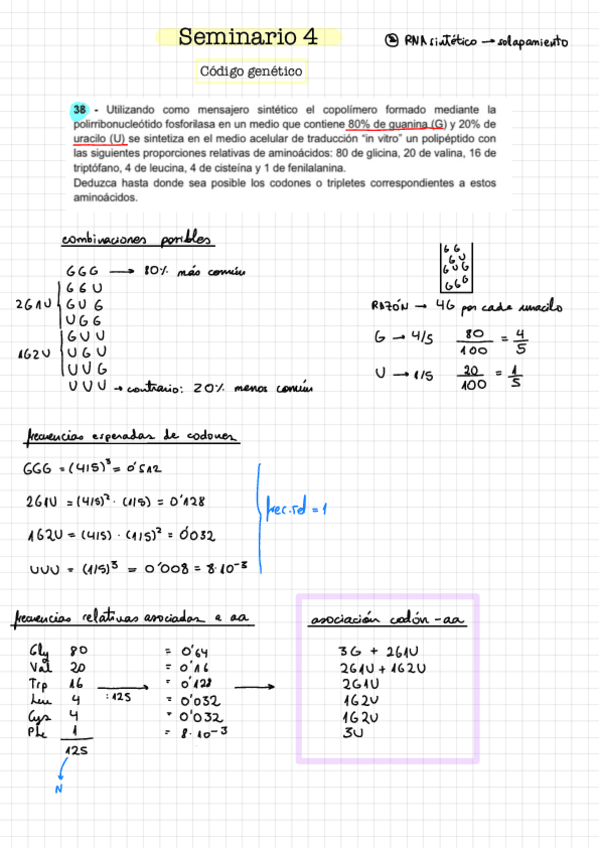 Seminario 4
② RNA sintético → solapamiento
Código genético
38 - Utilizando como mensajero sintético el copolímero formado mediante la
polirribonucleótido fosforilasa en un medio que contiene 80% de guanina (G) y 20% de
uracilo (U) se sintetiza en el medio acelular de traducción "in vitro" un polipéptido con
las siguientes proporciones relativas de aminoácidos: 80 de glicina, 20 de valina, 16 de
triptófano, 4 de leucina, 4 de cisteína y 1 de fenilalanina.
Deduzca hasta donde sea posible los codones o tripletes correspondientes a estos
aminoácidos.
combinaciones posibles
GGG → 80% más común
GGU
2G1U GUG
UGG
GUU
1G2U UGU
UUG
UUU → contrario: 20% menos común
GG
GU
GUG
GGG
RAZÓN → 4G por cada uracilo
G → 4/5 80/100 = 4/5
U → 1/5 20/100 = 1/5
frecuencias esperadas de codones
GGG = (4/5)³ = 0'512
2G1U = (4/5)² · (1/5) = 0'128
1G2U = (4/5) · (1/5)² = 0'032
UUU = (1/5)³ = 0'008 = 8·10⁻³
frec.rel = 1
frecuencias relativas asociadas a aa
Gly 80 = 0'64
Val 20 = 0'16
Trp 16 → :125 = 0'128 →
Leu 4 = 0'032
Cys 4 = 0'032
Phe 1 = 8·10⁻³
125
N
asociación codón-aa
3G + 2G1U
2G1U + 1G2U
2G1U
1G2U
1G2U
3U